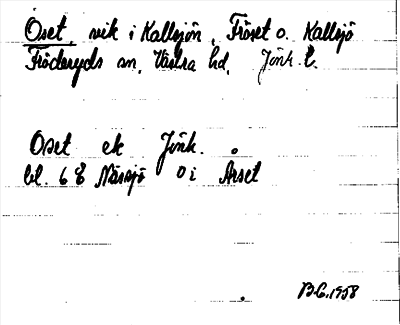 Oset, vik i Kallsjön, Fröset o. Kallsjö
Fröderyds sn, Västra hd, Jönk. l.
Oset ek Jönk.
bl. 68 Nässjö O i Arset
B.G. 1958